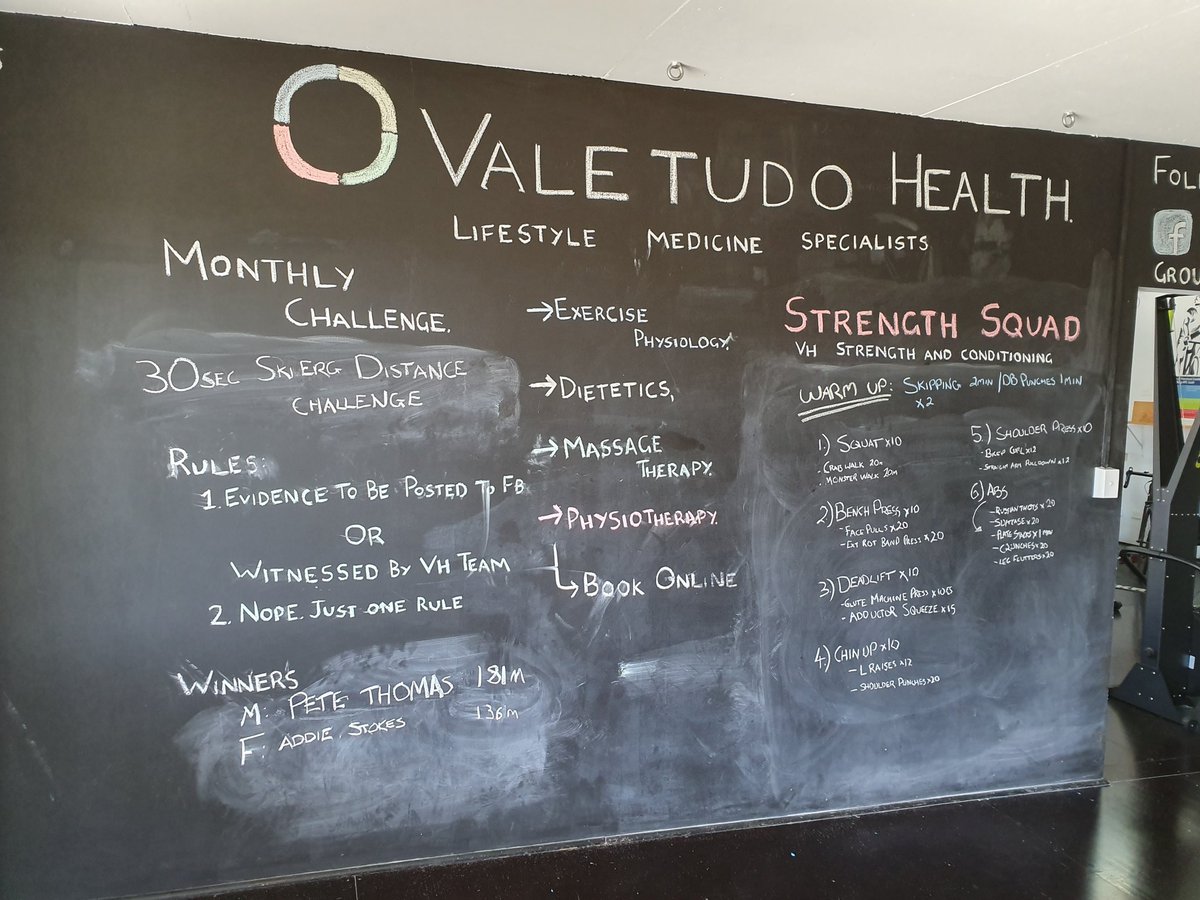 VALE TUDO HEALTH.
LIFESTYLE MEDICINE SPECIALISTS
MONTHLY
CHALLENGE.
30SEC SKIERG DISTANCE
CHALLENGE
RULES:
1. EVIDENCE TO BE POSTED TO FB
OR
WITNESSED BY VH TEAM
2. NOPE. JUST ONE RULE
WINNERS
M: PETE THOMAS 181m
F: ADDIE STOKES 136m
→EXERCISE
PHYSIOLOGY.
→DIETETICS,
→MASSAGE
THERAPY.
→PHYSIOTHERAPY.
BOOK ONLINE
STRENGTH SQUAD
VH STRENGTH AND CONDITIONING
WARM UP: SKIPPING 2MIN / DB PUNCHES 1MIN
x2
1.) SQUAT x10
- CRAB WALK 20m
- MONSTER WALK 20m
2) BENCH PRESS x10
- FACE PULLS x20
- EXT ROT BAND PRESS x20
3) DEADLIFT x10
- GLUTE MACHINE PRESS
- ADDUCTOR SQUEEZE x15
4.) CHIN UP x10
- L RAISES x12
- SHOULDER PUNCHES x20
5.) SHOULDER PRESS x10
- BICEP CURL x12
- STRAIGHT ARM PULLDOWN x12
6) ABS
- RUSSIAN TWISTS x20
x20
- PLATE x1 MIN
- CRUNCHES x20
- LEG FLUTTERS x20
FOLL
f
GROU